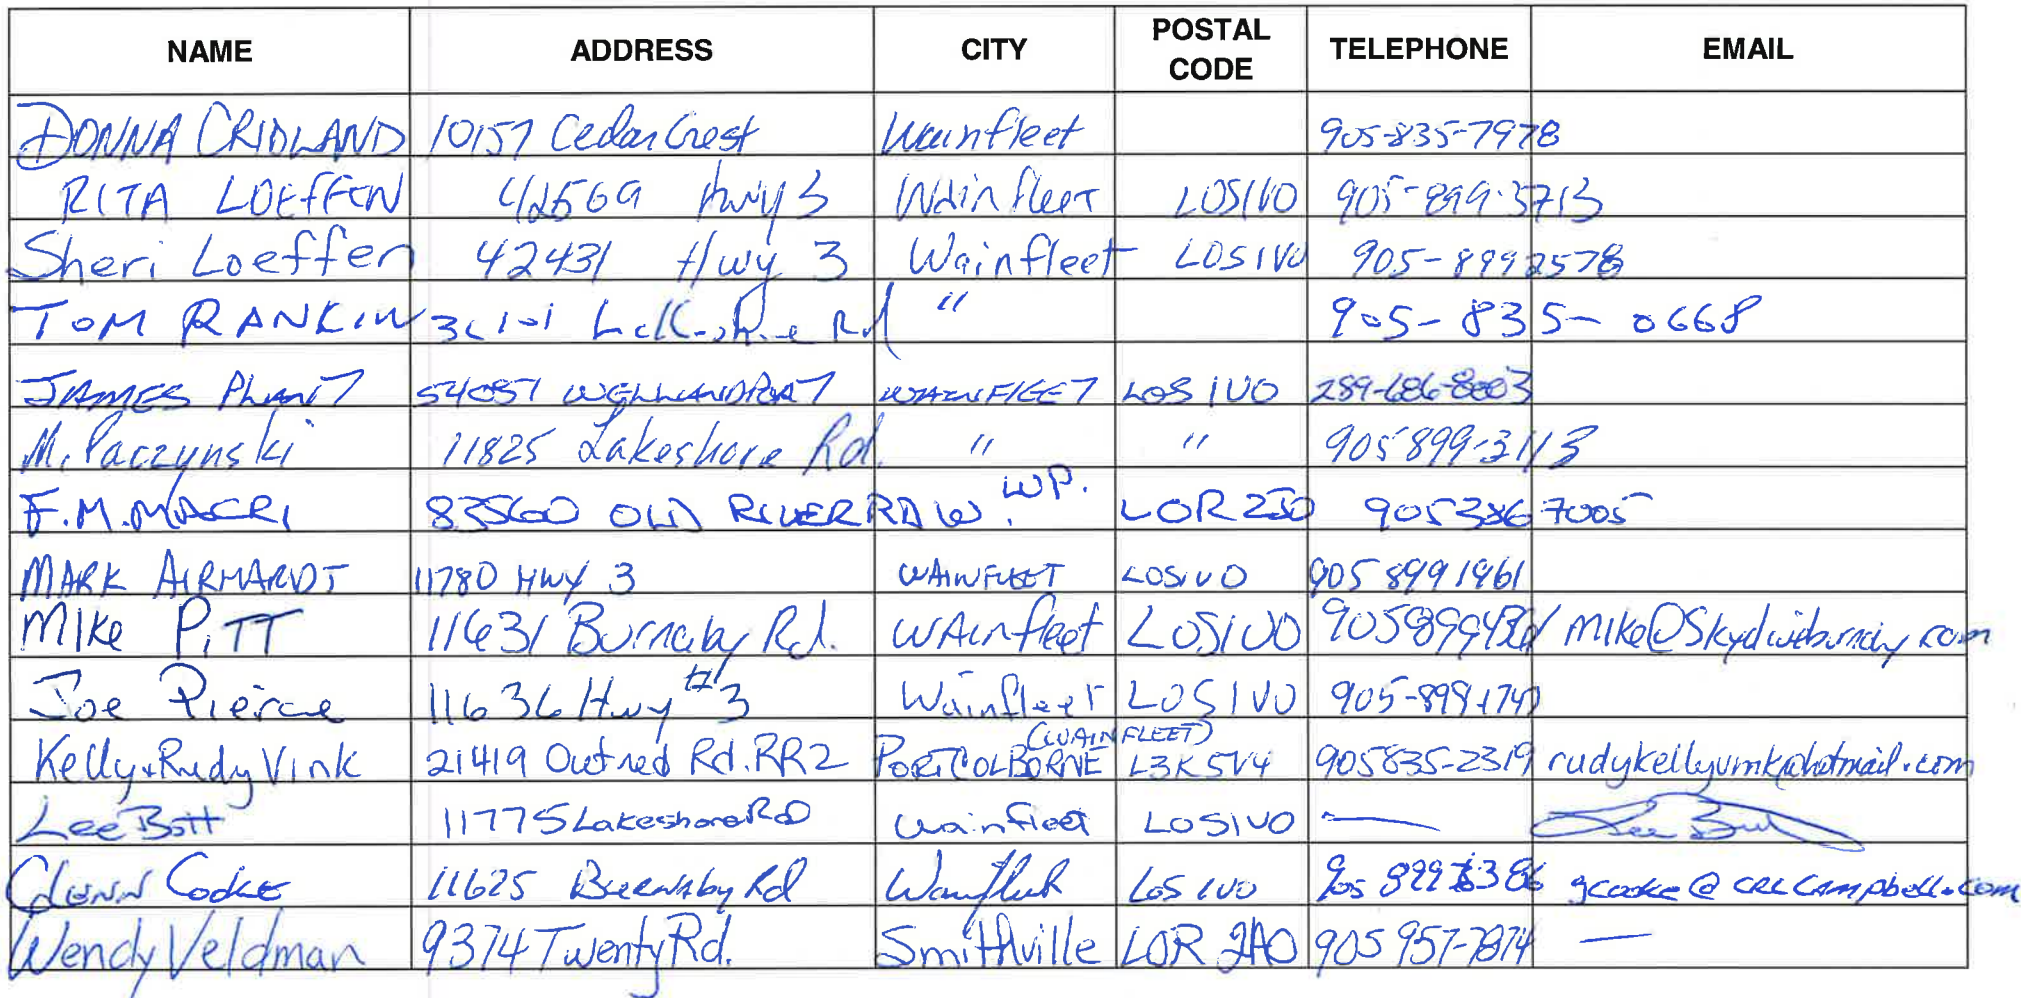 NAME ADDRESS CITY POSTAL CODE TELEPHONE EMAIL
DONNA CRIDLAND 10157 Cedar Crest Wainfleet 905-835-7978
RITA LOEFFEN 42569 Hwy 3 Wainfleet LOS1VO 905-899-3713
Sheri Loeffen 42431 Hwy 3 Wainfleet LOS1VO 905-8992578
TOM RANKIN Lakeshore Rd " 905-835-0668
JAMES WELLANDPORT WAINFLEET LOS 1VO 289-686-8003
M. Paczynski 11825 Lakeshore Rd. " " 905 899-3113
F.M.MACRI 83560 OLD RIVER RD W. WP. LOR 2JO 905 386 7005
MARK AIRHARDT 11780 HWY 3 WAINFLEET LOS1VO 905 899 1961
Mike PITT 11631 Burnaby Rd. WAinfleet LOS1VO
Joe Pierce 11636 Hwy #3 Wainfleet LOS1VO
Kelly+Rudy Vink 21419 Outred Rd. RR2 PORT COLBORNE (WAINFLEET) L3K5V4 905835-2319 rudykellyvink@hotmail.com
Lee Bott 11775 Lakeshore Rd Wainfleet LOS1VO — Lee Bott
Glenn Cooke 11625 Burnaby Rd Wainfleet LOS 1VO gcooke@crlcampbell.com
Wendy Veldman 9374 Twenty Rd. Smithville LOR 2AO 905 957-7874 —